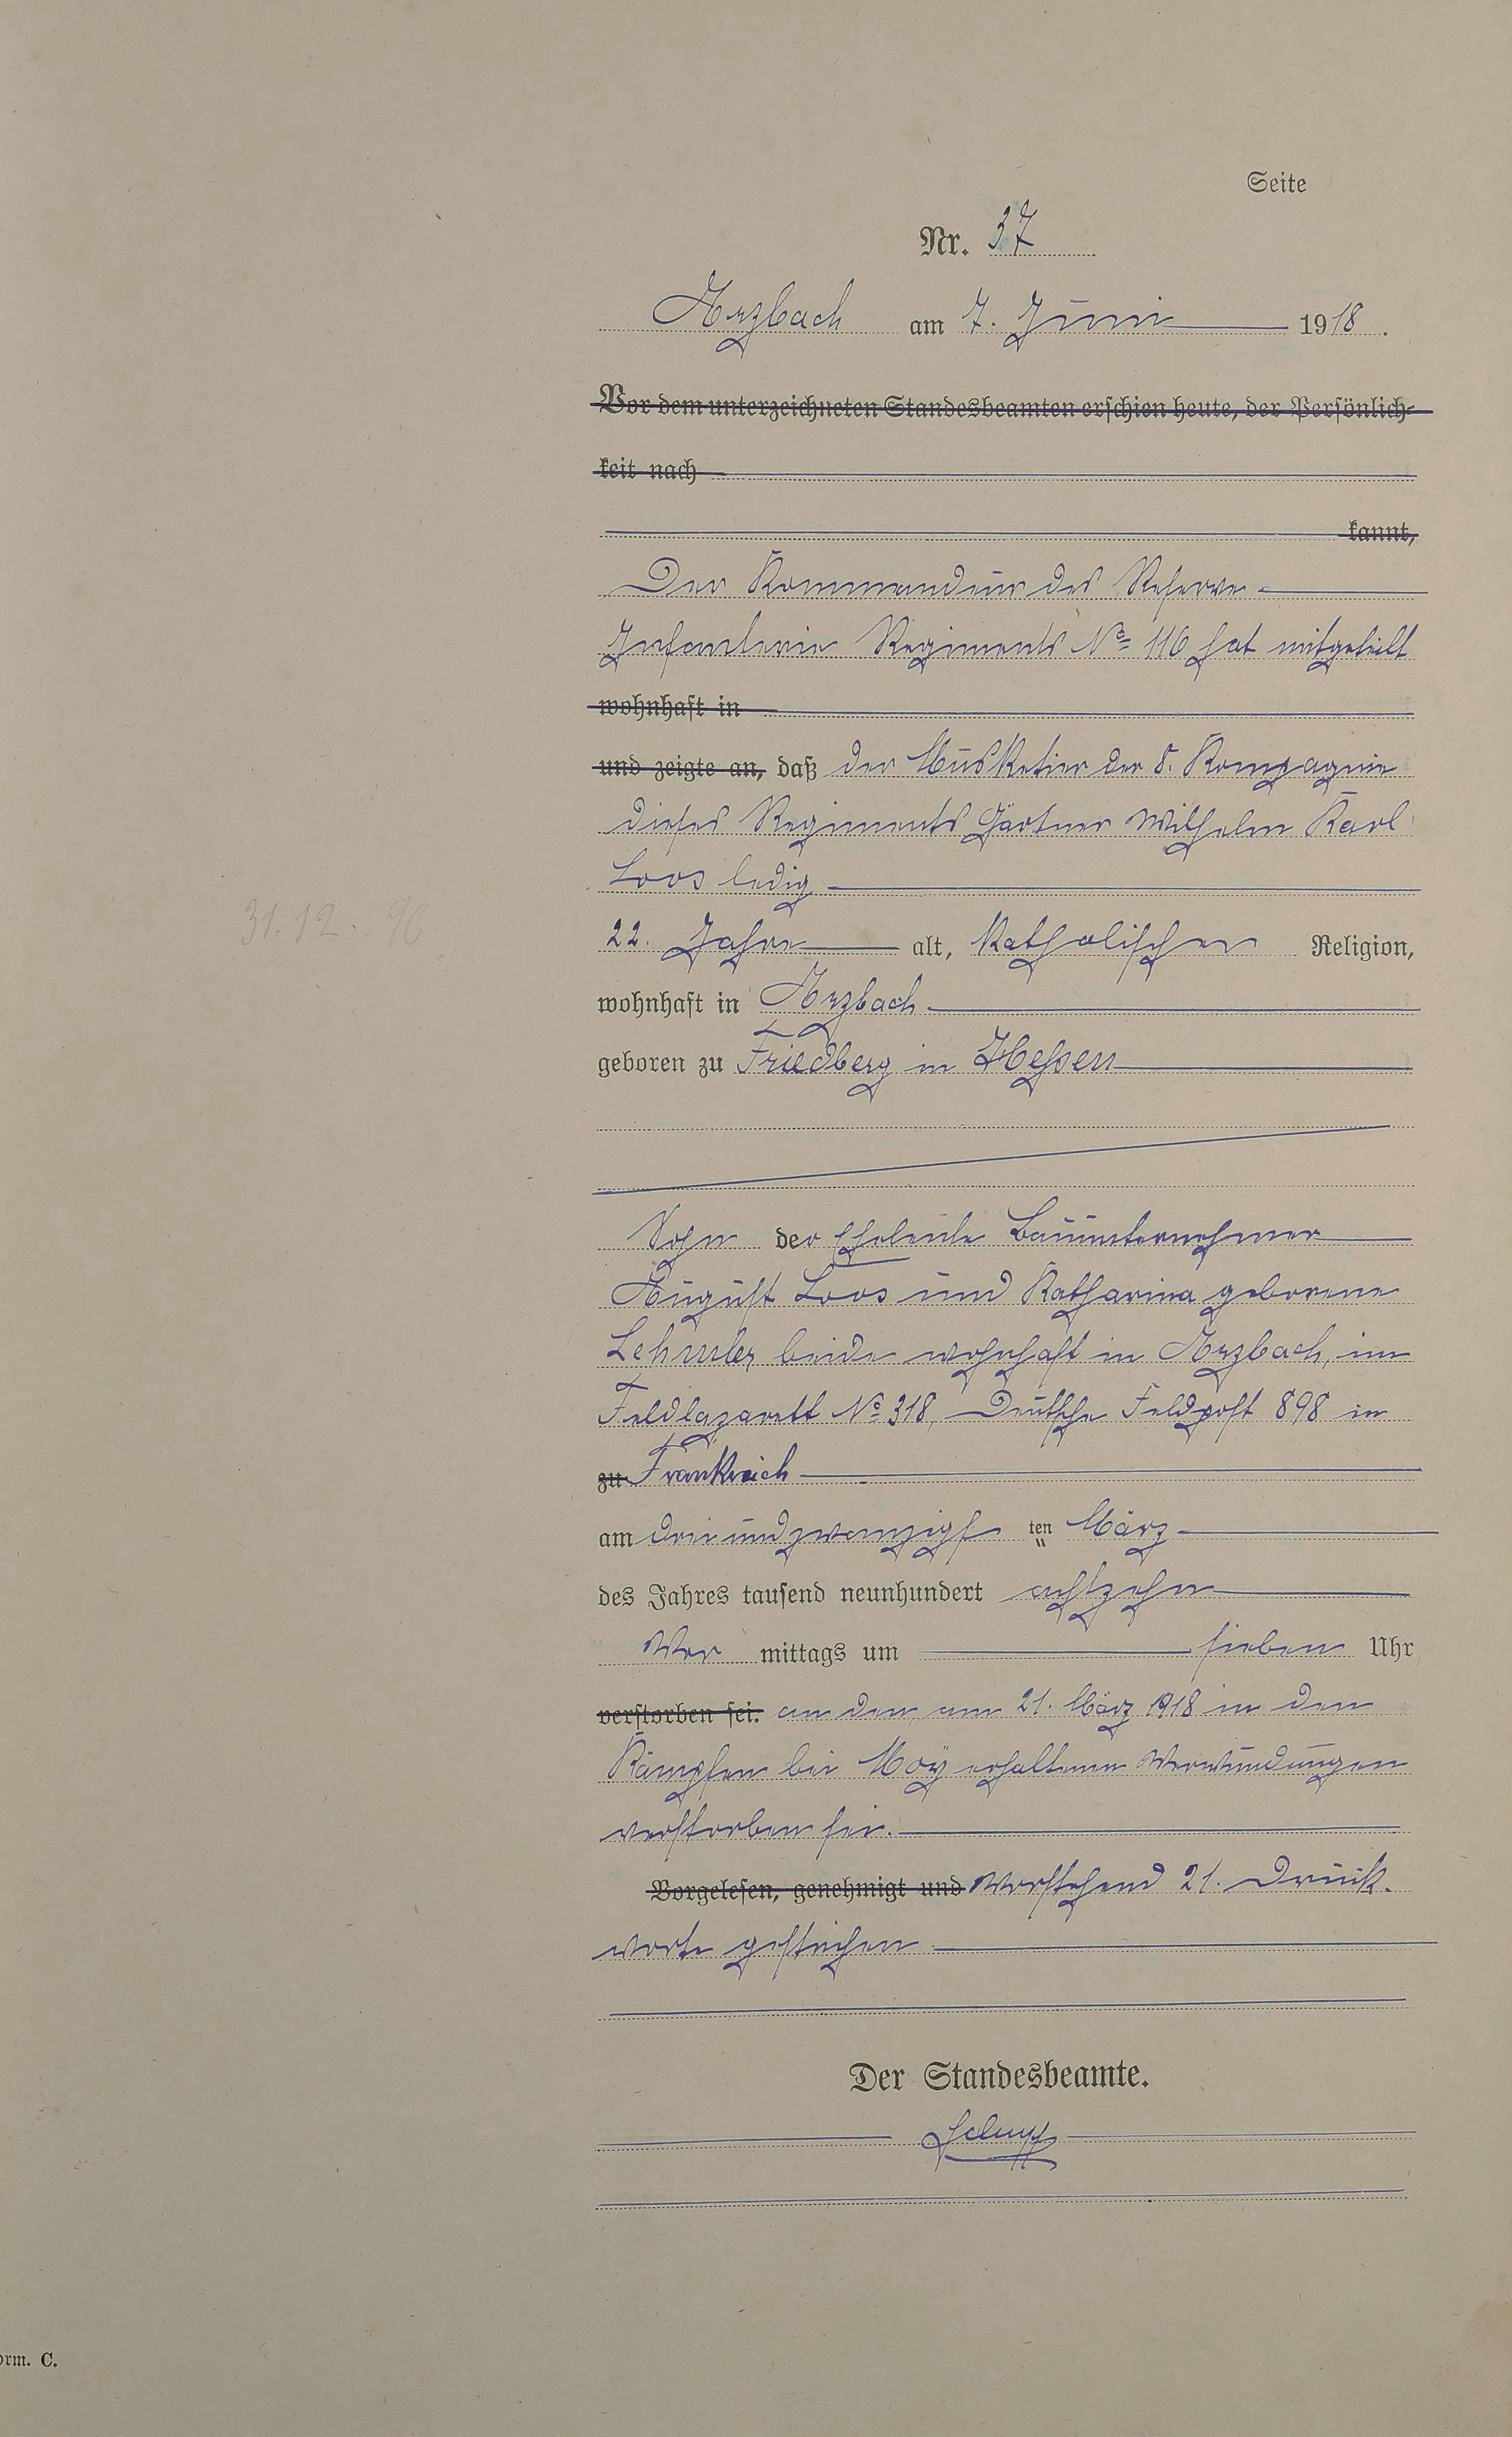 Seite
Nr. 37
Arzbach am 7. Juni 1918.
Vor dem unterzeichneten Standesbeamten erschien heute, der Persönlich-
keit nach
kannt,
Der Kommandeur des Reserve-
Infanterie Regiments No 116 hat mitgeteilt
wohnhaft in
und zeigte an, daß der Musketier der 8. Kompagnie
dieses Regiments Gärtner Wilhelm Karl
Loos ledig
31.12. 96
22. Jahre alt, katholischer Religion,
wohnhaft in Arzbach
geboren zu Friedberg in Hessen
Sohn der Eheleute Bauunternehmer
August Loos und Katharina geborene
beide wohnhaft in Arzbach, im
Feldlazarett No 318, Deutsche Feldpost 898 in
zu Frankreich
am dreiundzwanzigsten März
des Jahres tausend neunhundert achtzehn
Vor mittags um sieben Uhr
verstorben sei. an den am 21. März 1918 in den
Kämpfen bei Moÿ erhaltenen Verwundungen
verstorben sei.
Vorgelesen, genehmigt und Vorstehend 21. Druck-
worte gestrichen
Der Standesbeamte.
orm. C.